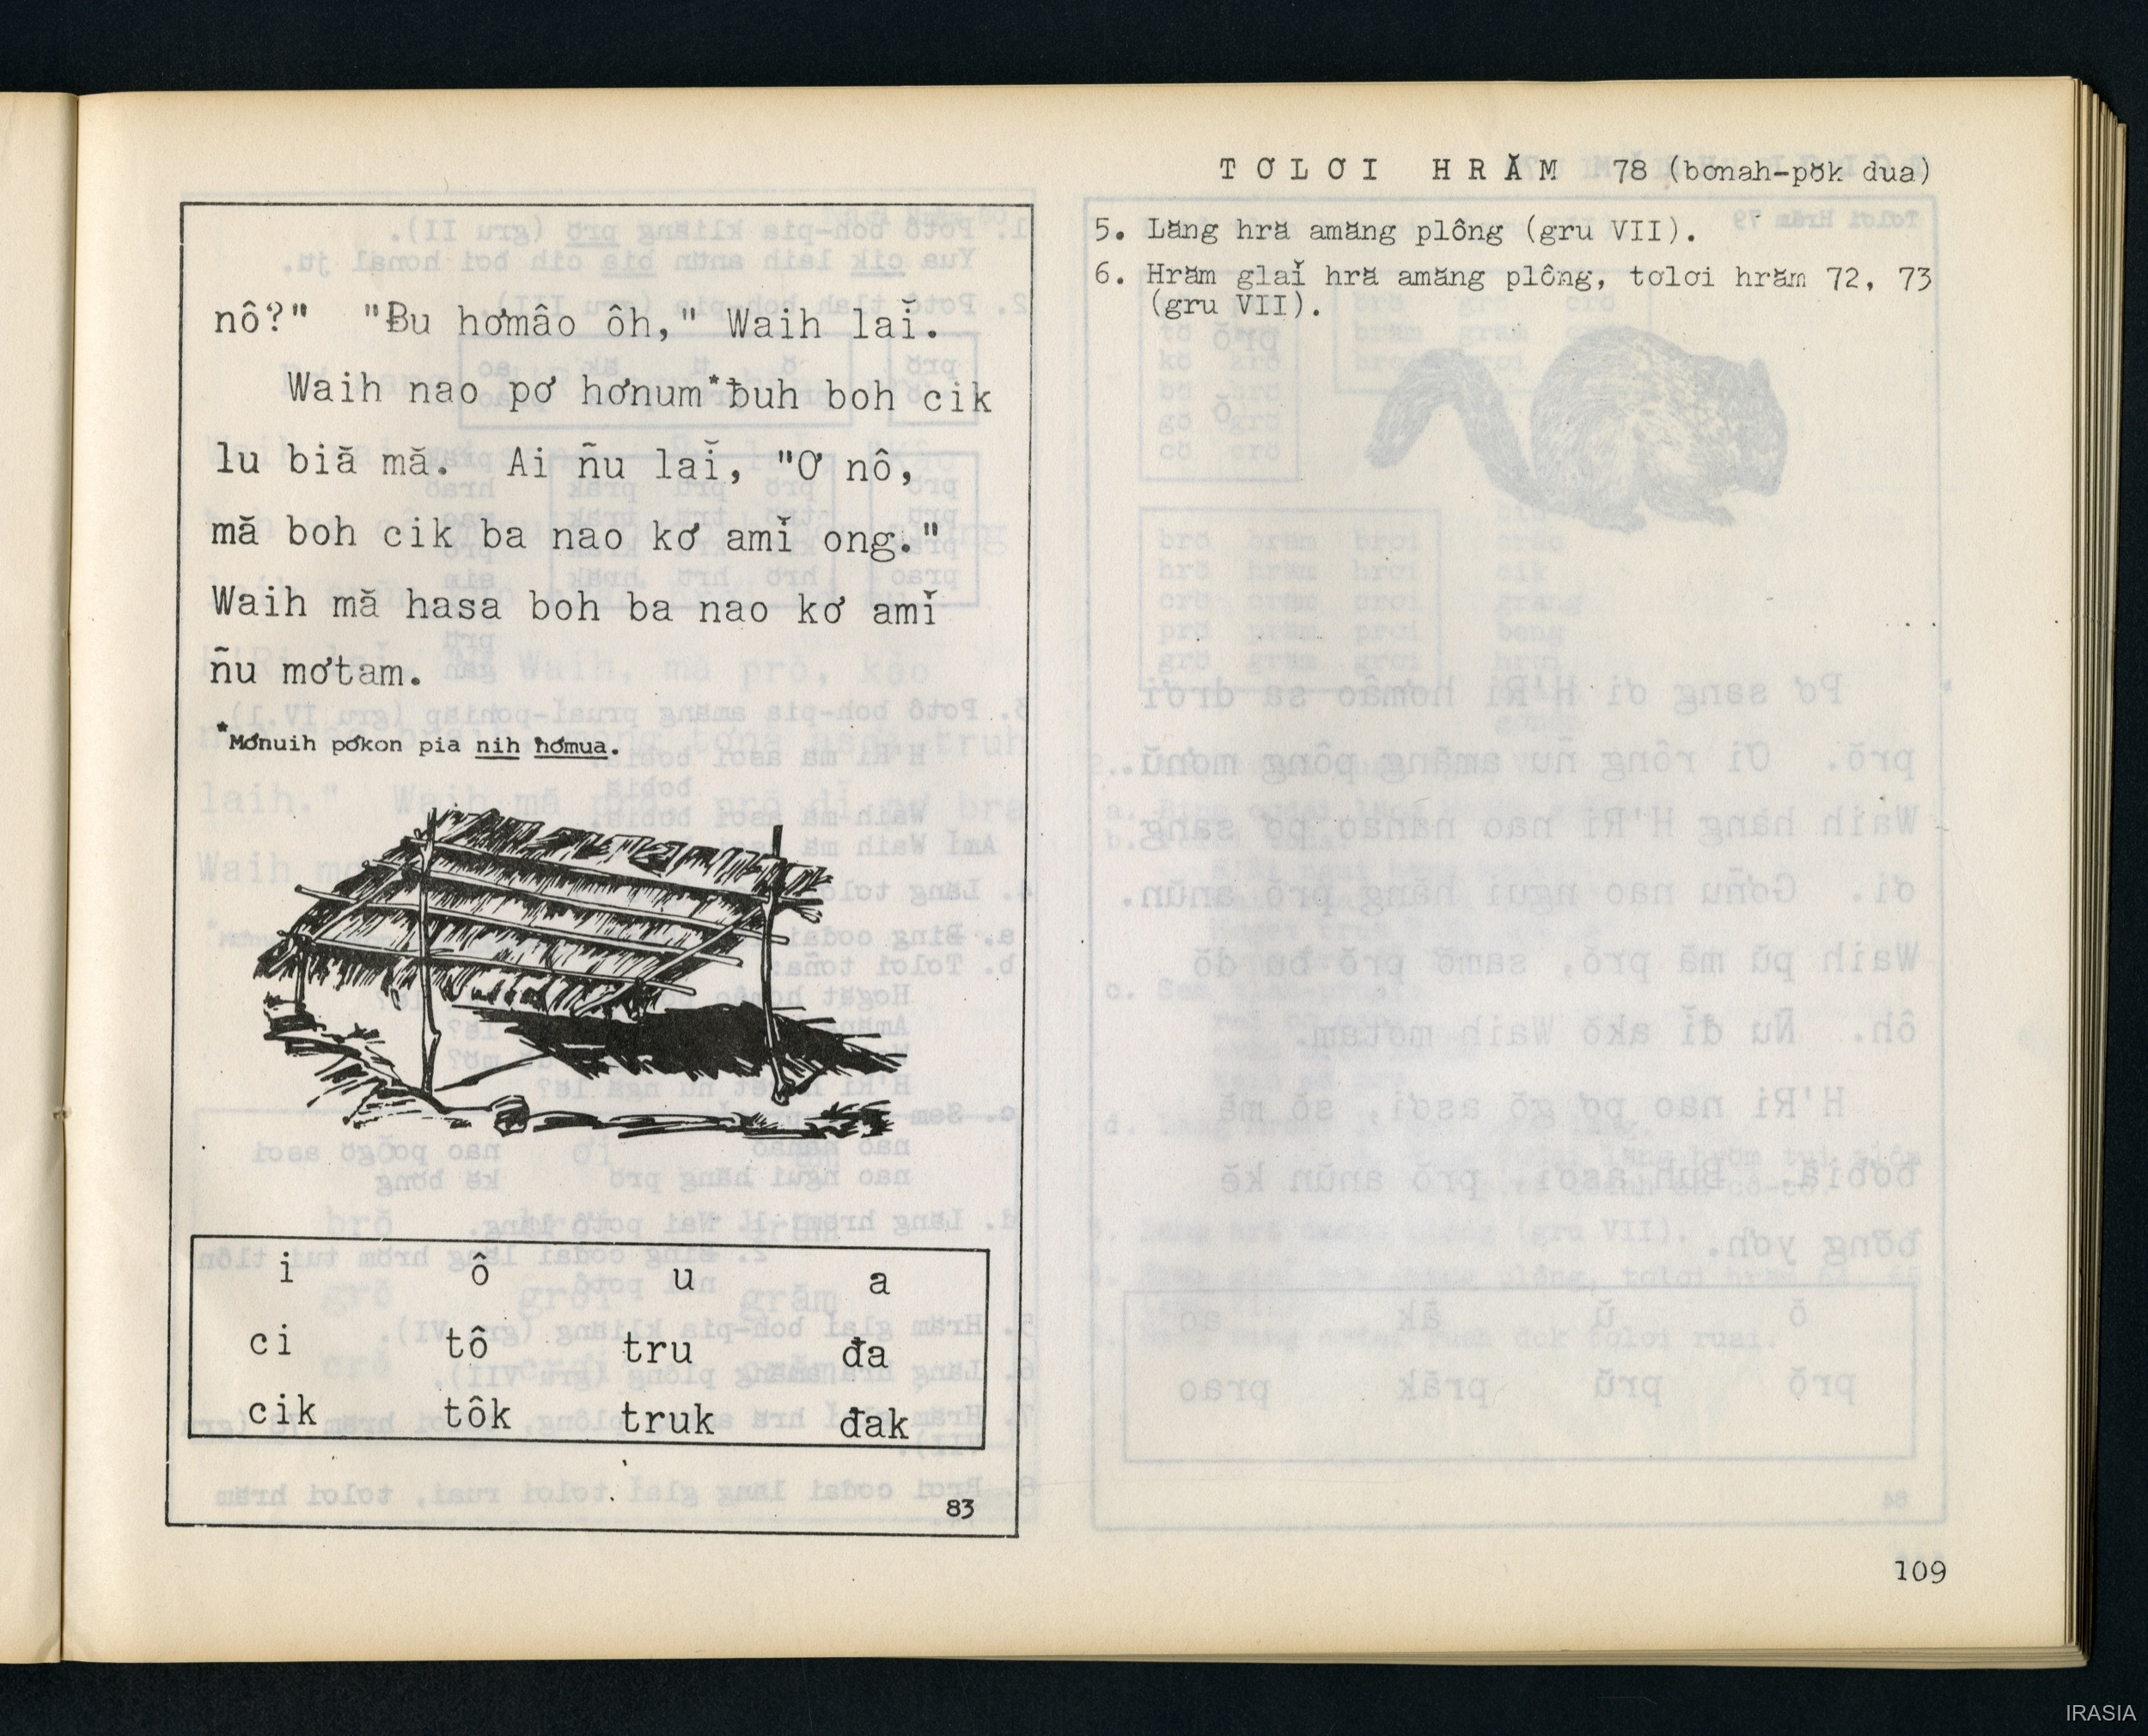 nô?" "Ƀu hơmâo ôh," Waih laĭ.
Waih nao pơ hơnum*ƀuh boh cik
lu biă mă. Ai ñu laĭ, "Ơ nô,
mă boh cik ba nao kơ amĭ ong."
Waih mă hasa boh ba nao kơ amĭ
ñu mơtam.
*Mơnuih pơkon pia nih hơmua.
i ô u a
ci tô tru đa
cik tôk truk đak
83
TƠLƠI HRĂM 78 (bơnah-pŏk dua)
5. Lăng hră amăng plông (gru VII).
6. Hrăm glaĭ hră amăng plông, tơlơi hrăm 72, 73
(gru VII).
109
IRASIA